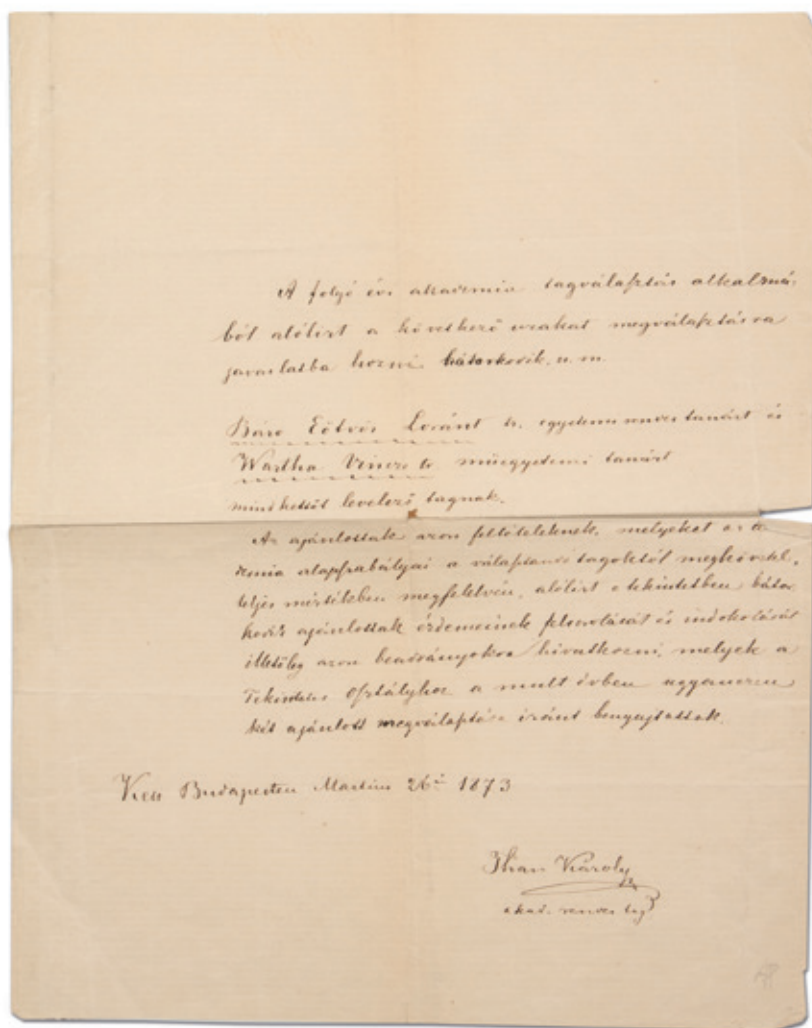 A folyó évi akademia tagválasztás alkalmá-
ból alólirt a következő urakat megválasztásra
javaslatba hozni bátorkodik, u. m.
Báro Eötvös Loránt tr. egyetemi rendes tanárt és
Wartha Vincze tr. műegyetemi tanárt
mindkettőt levelező tagnak.
Az ajánlottak azon feltételeknek, melyeket az a
demia alapszabályai a választandó tagoktól megkövetel,
teljes mértékben megfelelvén, alólirt e tekintetben bátor
kodik ajánlottak érdemeinek felsorolását és indokolását
illetőleg azon beadványokra hivatkozni, melyek a
Tekintetes Osztályhoz a mult évben ugyanezen
két ajánlott megválasztása iránt benyujtattak.
Budapesten Martius 26. 1873
Than Károly
akad. rendes tag